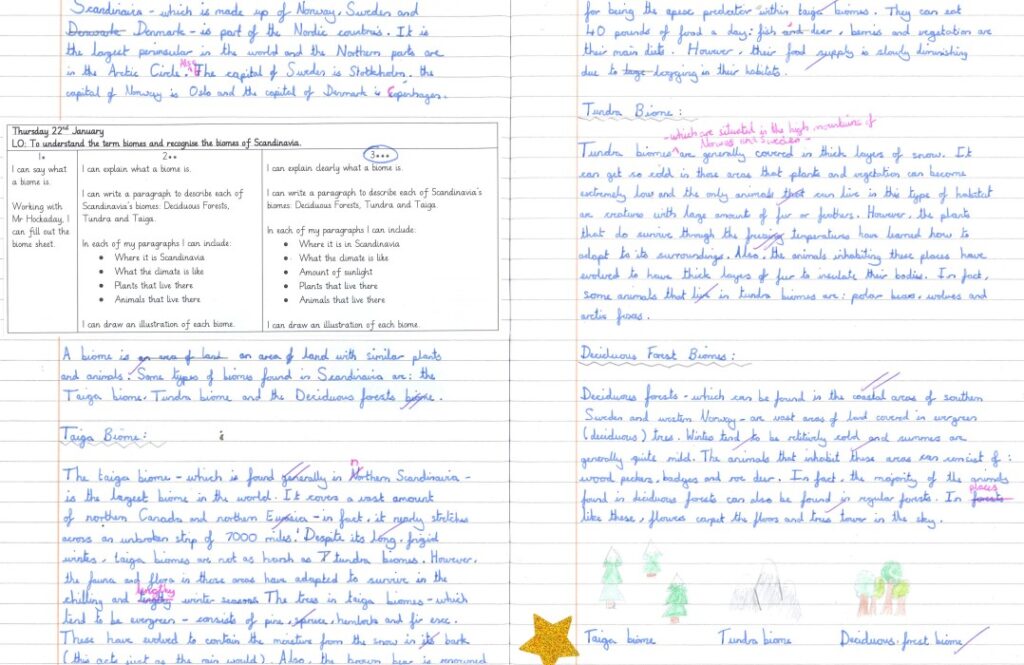 Scandinavia - which is made up of Norway, Sweden and
Denmark Denmark - is part of the Nordic countries. It is
the largest peninsular in the world and the Northern parts are
in the Arctic Circle. Also, The capital of Sweden is Stockholm, the
capital of Norway is Oslo and the capital of Denmark is Copenhagen.
Thursday 22nd January
LO: To understand the term biomes and recognise the biomes of Scandinavia.
1*
I can say what
a biome is.
Working with
Mr Hockaday, I
can fill out the
biome sheet.
2**
I can explain what a biome is.
I can write a paragraph to describe each of
Scandinavia's biomes: Deciduous Forests,
Tundra and Taiga.
In each of my paragraphs I can include:
• Where it is Scandinavia
• What the climate is like
• Plants that live there
• Animals that live there
I can draw an illustration of each biome.
3***
I can explain clearly what a biome is.
I can write a paragraph to describe each of Scandinavia's
biomes: Deciduous Forests, Tundra and Taiga.
In each of my paragraphs I can include:
• Where it is in Scandinavia
• What the climate is like
• Amount of sunlight
• Plants that live there
• Animals that live there
I can draw an illustration of each biome.
A biome is an area of land an area of land with similar plants
and animals. Some types of biomes found in Scandinavia are: the
Taiga biome, Tundra biome and the Deciduous forests biome.
Taiga Biome:
The taiga biome - which is found generally in Northern Scandinavia -
is the largest biome in the world. It covers a vast amount
of northern Canada and northern Eurasia - in fact, it nearly stretches
across an unbroken strip of 7000 miles! Despite its long, frigid
winter, taiga biomes are not as harsh as tundra biomes. However,
the fauna and flora in these areas have adapted to survive in the
chilling and lengthy winter seasons. The trees in taiga biomes - which
tend to be evergreen - consists of pine, spruce, hemlock and fir
These have evolved to contain the moisture from the snow in its bark
(this acts just as the rain would). Also, the brown bear is renowned
for being the apex predator within taiga biomes. They can eat
40 pounds of food a day: fish and deer, berries and vegetation are
their main diets. However, their food supply is slowly diminishing
due to logging in their habitats.
Tundra Biome:
- which are situated in the high mountains of
Norway and Sweden -
Tundra biomes are generally covered in thick layers of snow. It
can get so cold in these areas that plants and vegetation can become
extremely low and the only animals that can live in this type of habitat
are creatures with large amount of fur or feathers. However, the plants
that do survive through the freezing temperatures have learned how to
adapt to its surroundings. Also, the animals inhabiting these places have
evolved to have thick layers of fur to insulate their bodies. In fact,
some animals that live in tundra biomes are: polar bears, wolves and
arctic foxes.
Deciduous Forest Biomes:
Deciduous forests - which can be found in the coastal areas of southern
Sweden and western Norway - are vast areas of land covered in evergreen
(deciduous) trees. Winters tend to be relitively cold and summers are
generally quite mild. The animals that inhabit these areas can consist of:
wood peckers, badgers and roe deer. In fact, the majority of the animals
found in deciduous forests can also be found in regular forests. In forests places
like these, flowers carpet the floors and trees tower in the sky.
Taiga biome
Tundra biome
Deciduous forest biome